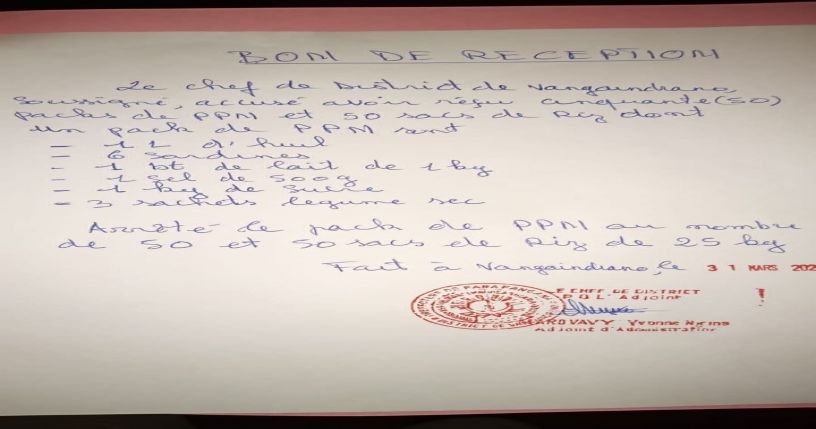 BON DE RECEPTION
Le chef de District de Vangaindrano,
Soussigné, accusé avoir reçu cinquante (50)
packs de PPM et 50 sacs de Riz dont
un pack de PPM sont
- 1 L d'huil
- 6 sardines
- 1 bt de lait de 1 kg
- 1 sel de 500g
- 1 kg de sucre
- 3 sachets legume sec
Arrêté le pack de PPM au nombre
de 50 et 50 sacs de Riz de 25 kg
Fait à Vangaindrano, le 31 MARS 202
E CHEF DE DISTRICT
P.O L'Adjoint
AROVAVY Yvonne
Adjoint d'Administration